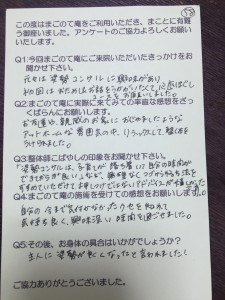 この度はまごのて庵をご利用いただき、まことに有難
う御座いました。アンケートのご協力よろしくお願い
いたします。
Q1:今回まごのて庵にご来院いただいたきっかけをお
聞かせ下さい。
元々は姿勢コンサルに興味があり
初回はおためしお
コースをお願いしました。
Q2.まごのて庵に実際に来てみての率直な感想をざっ
くばらんにお願いします。
お友達や親戚のお家におじゃましたような
アットホームな雰囲気の中、リラックスして整体を
うけられました。
Q3.整体師こばやしの印象をお聞かせ下さい。
「姿勢コンサルは、子育てが落ち着いて自分の時間が
できてからが良いようなど、無理なく
すすめていただけて
Q4.まごのて庵の施術を受けての感想をお願いします。
自分の今まで気付かなかったクセを知れて
気持ち良く、興味深い時間を過ごせました。
Q5:その後、お身体の具合はいかがでしょうか？
主人に姿勢が良くなったと言われました！
ご協力ありがとうございました。